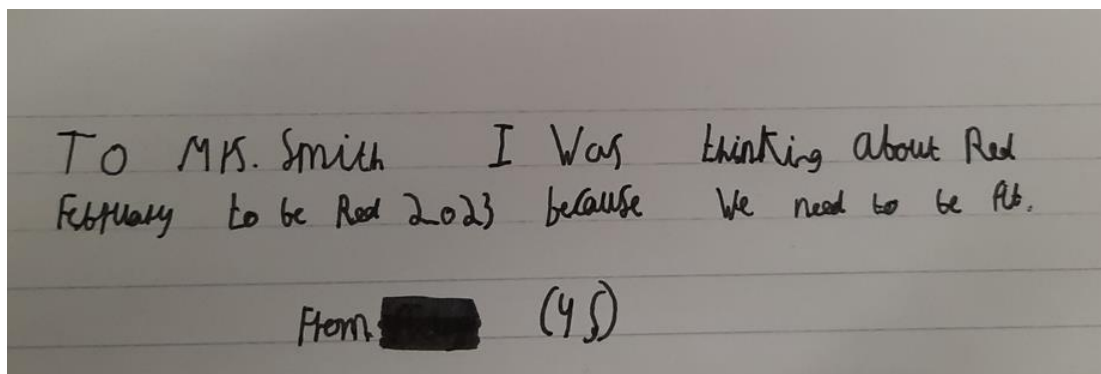 To Mrs. Smith I Was thinking about Red
February to be Red 2023 because We need to be fit.
From (4S)